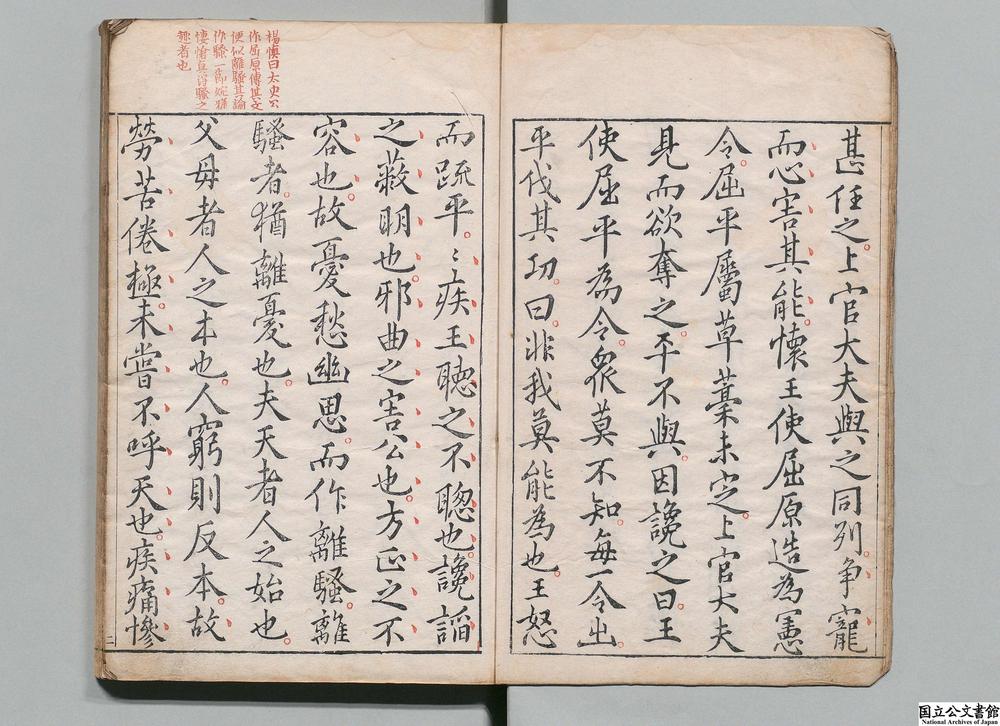 甚任之上官大夫與之同列争寵
而心害其能懷王使屈原造為憲
令屈平屬草藁未定上官大夫
見而欲奪之平不與因讒之曰王
使屈平為令衆莫不知每一令出
平伐其功曰非我莫能為也王怒
楊慎曰太史公
作屈原傳其文
便似離騷其論
作騷一節婉雅
悽愴真得騷之
趣者也
而疏平〻疾王聴之不聰也讒謟
之蔽明也邪曲之害公也方正之不
容也故憂愁幽思而作離騷離
騷者猶離憂也夫天者人之始也
父母者人之本也人窮則反本故
勞苦倦極未甞不呼天也疾痛慘
二
国立公文書館
National Archives of Japan